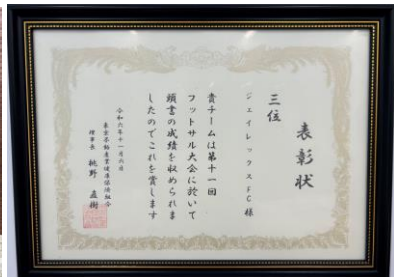 表彰状
三位
ジェイレックスFC様
貴チームは第十一回
フットサル大会に於いて
頭書の成績を収められま
したのでこれを賞します
令和六年十一月六日
東京不動産業健康保険組合
理事長 桃野 直樹